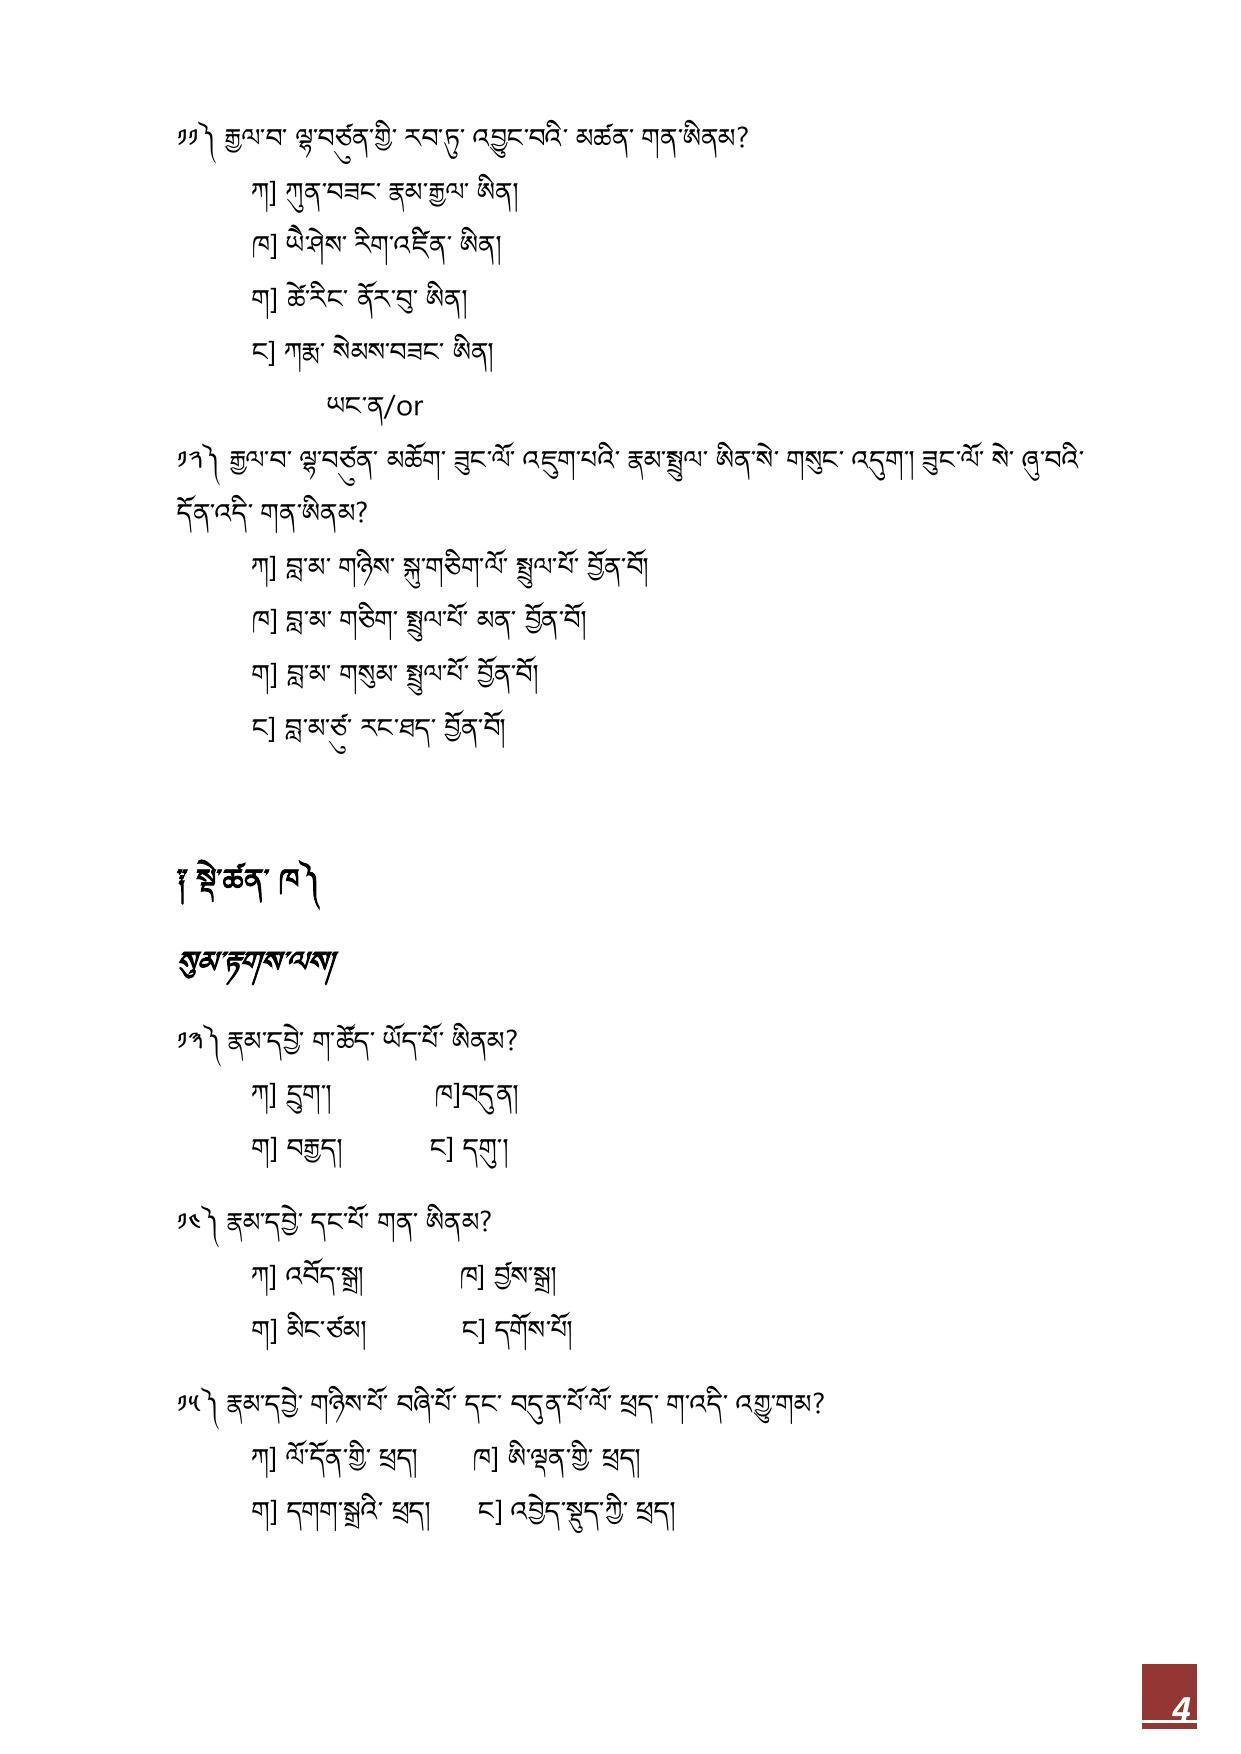 ༡༡༽ རྒྱལ་བ་ ལྷ་བཙུན་གྱི་ རབ་ཏུ་ འབྱུང་བའི་ མཚན་ གན་ཨིནམ?
ཀ] ཀུན་བཟང་ རྣམ་རྒྱལ་ ཨིན།
ཁ] ཡེ་ཤེས་ རིག་འཛིན་ ཨིན།
ག] ཚེ་རིང་ ནོར་བུ་ ཨིན།
ང] ཀརྨ་ སེམས་བཟང་ ཨིན།
ཡང་ན/or
༡༢༽ རྒྱལ་བ་ ལྷ་བཙུན་ མཆོག་ ཟུང་ལོ་ འཇུག་པའི་ རྣམ་སྤྲུལ་ ཨིན་སེ་ གསུང་ འདུག།  ཟུང་ལོ་ སེ་ ཞུ་བའི་
དོན་འདི་ གན་ཨིནམ?
ཀ] བླ་མ་ གཉིས་ སྐུ་གཅིག་ལོ་ སྤྲུལ་པོ་ བྱོན་བོ།
ཁ] བླ་མ་ གཅིག་ སྤྲུལ་པོ་ མན་ བྱོན་བོ།
ག] བླ་མ་ གསུམ་ སྤྲུལ་པོ་ བྱོན་བོ།
ང] བླ་མ་ཙུ་ རང་ཐད་ བྱོན་བོ།
༈ སྡེ་ཚན་ ཁ༽
སུམ་རྟགས་ལས།
༡༣༽ རྣམ་དབྱེ་ ག་ཚོད་ ཡོད་པོ་ ཨིནམ?
ཀ] དྲུག། ཁ]བདུན།
ག] བརྒྱད། ང] དགུ།
༡༤༽ རྣམ་དབྱེ་ དང་པོ་ གན་ ཨིནམ?
ཀ] འབོད་སྒྲ། ཁ] བྱས་སྒྲ།
ག] མིང་ཙམ། ང] དགོས་པོ།
༡༥༽ རྣམ་དབྱེ་ གཉིས་པོ་ བཞི་པོ་ དང་ བདུན་པོ་ལོ་ ཕྲད་ ག་འདི་ འགྱུ་གམ?
ཀ] ལོ་དོན་གྱི་ ཕྲད། ཁ] ཨི་ལྡན་གྱི་ ཕྲད།
ག] དགག་སྒྲའི་ ཕྲད། ང] འབྱེད་སྡུད་ཀྱི་ ཕྲད།
4